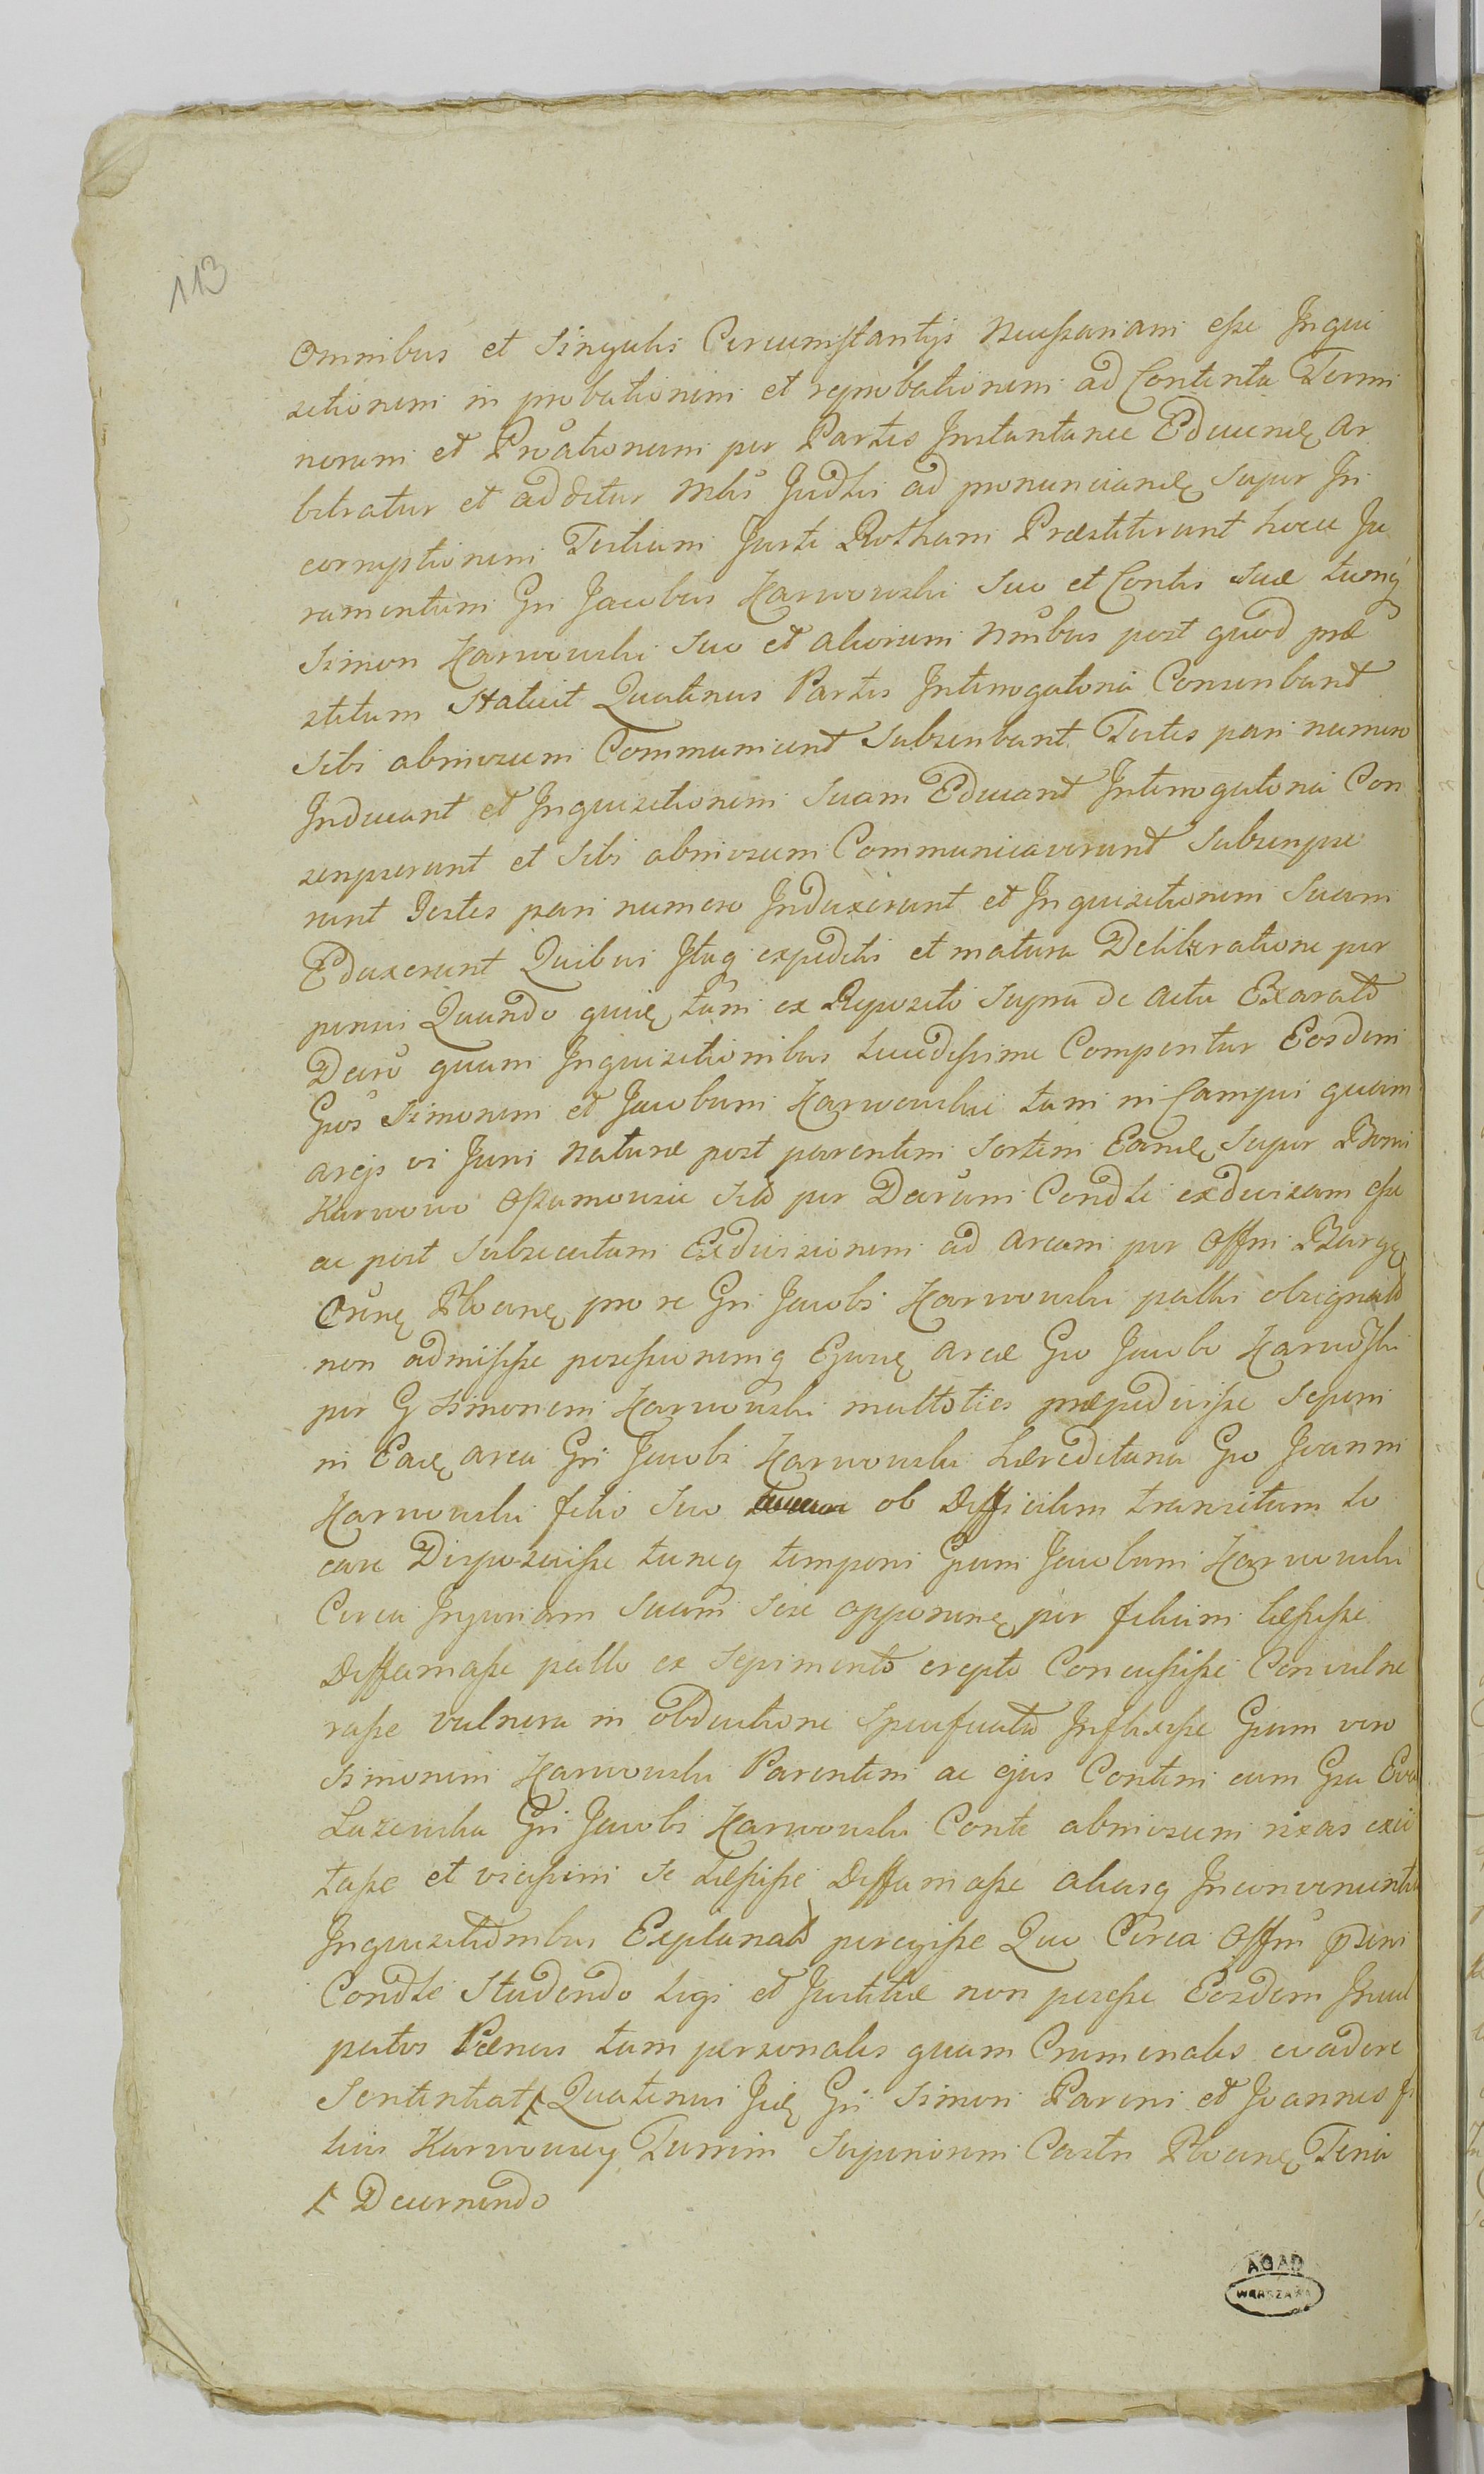 113
Omnibus et Singulis Circumstantijs Necessariam esse Inqui
sitionem in probationem et reprobationem ad Contenta Termi
norum et Proationum per Partes Instantanee Educend. ar
bitratur et additur Mbs Judtii ad pronunciand. Super In
corruptionem Testium Juxta Rotham Præstiterunt hocce Ju
ramentum Gsi Jacobus Karwowski Suo et Contis Suæ tumq
Simon Karwowski Suo et aliorum Nnibus post quod præ
stitum Statuit Quatenus Partes Interrogatoria Conscribant
Sibi abinvicem Communicent Subscribant Testes pari numero
Inducant et Inquisitionem Suam Educant Interrogatoria Con
scripserunt et Sibi abinvicem Communicaverunt Subscripse
runt Testes pari numero Induxerunt et Inquisitionem Suam
Eduxerunt Quibus Itaq expeditis et matura Deliberatione per
pensis Quando quid. tam ex Reposito Supra de Actu Exarato
Decro quam Inquisitionibus Lucidissime Comperitur Eosdem
Gsos Simonem et Jacobum Karwowskie tam in Campis quam
areis vi Juris Naturæ post parentem Sortem Eand. Super Bonis
Karwowo Orszymowice Sito per Decrum Condle exdivisam esse
ac post Subsecutam Exdivisionem ad aream per Offm Burg.
Crune Plocens. pro re Gsi Jacobi Karwowski palli obsignato
non admisisse possessionemq Ejusd. areæ Gso Jacobo Karwoski
per G Simonem Karwowski multoties præpedivisse Sepem
in Ead. area Gsi Jacobi Karwowski hæreditaria Gso Joanni
Karwowski filio Suo ob Difficilem transitum lo
care Disposuisse tuncq temporis Gsum Jacobum Karwowski
Circa Injuriam Suam Sese opponend. per filium læsisse
Diffamasse pallo ex Sepimento erepto Concussisse Convulne
rasse vulnera in obductione Specificata Inflixisse Gsum vero
Simonem Karwowski Parentem ac ejus Contem cum Gsa Eva
Lasewska Gsi Jacobi Karwowski Conte abinvicem rixas exci
tasse et vicissim Se Læsisse Diffamasse aliasq Inconvenientias
Inquisitionibus Explanato peregisse Quo Circa Offm pnes
Condle Studendo Legi et Justitiæ non posse Eosdem Incul
patos Pænas tam personales quam Criminales evadere
Sententiat Quatenus Iid. Gsi Simon Parens et Joannes fi
lius Karwowscy Turrim Superiorem Castri Plocens. Feria
Decernendo
AGAD
WARSZAWA